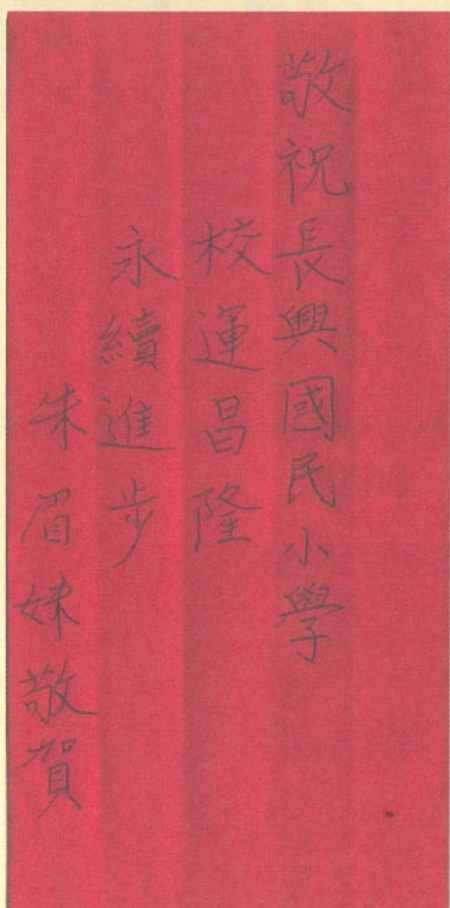 敬祝長興國民小學
校運昌隆
永續進步
朱眉妹敬賀